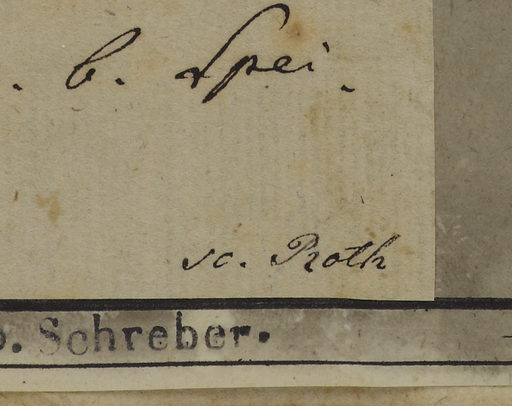 . b. Spei.
sc. Roth
b. Schreber.